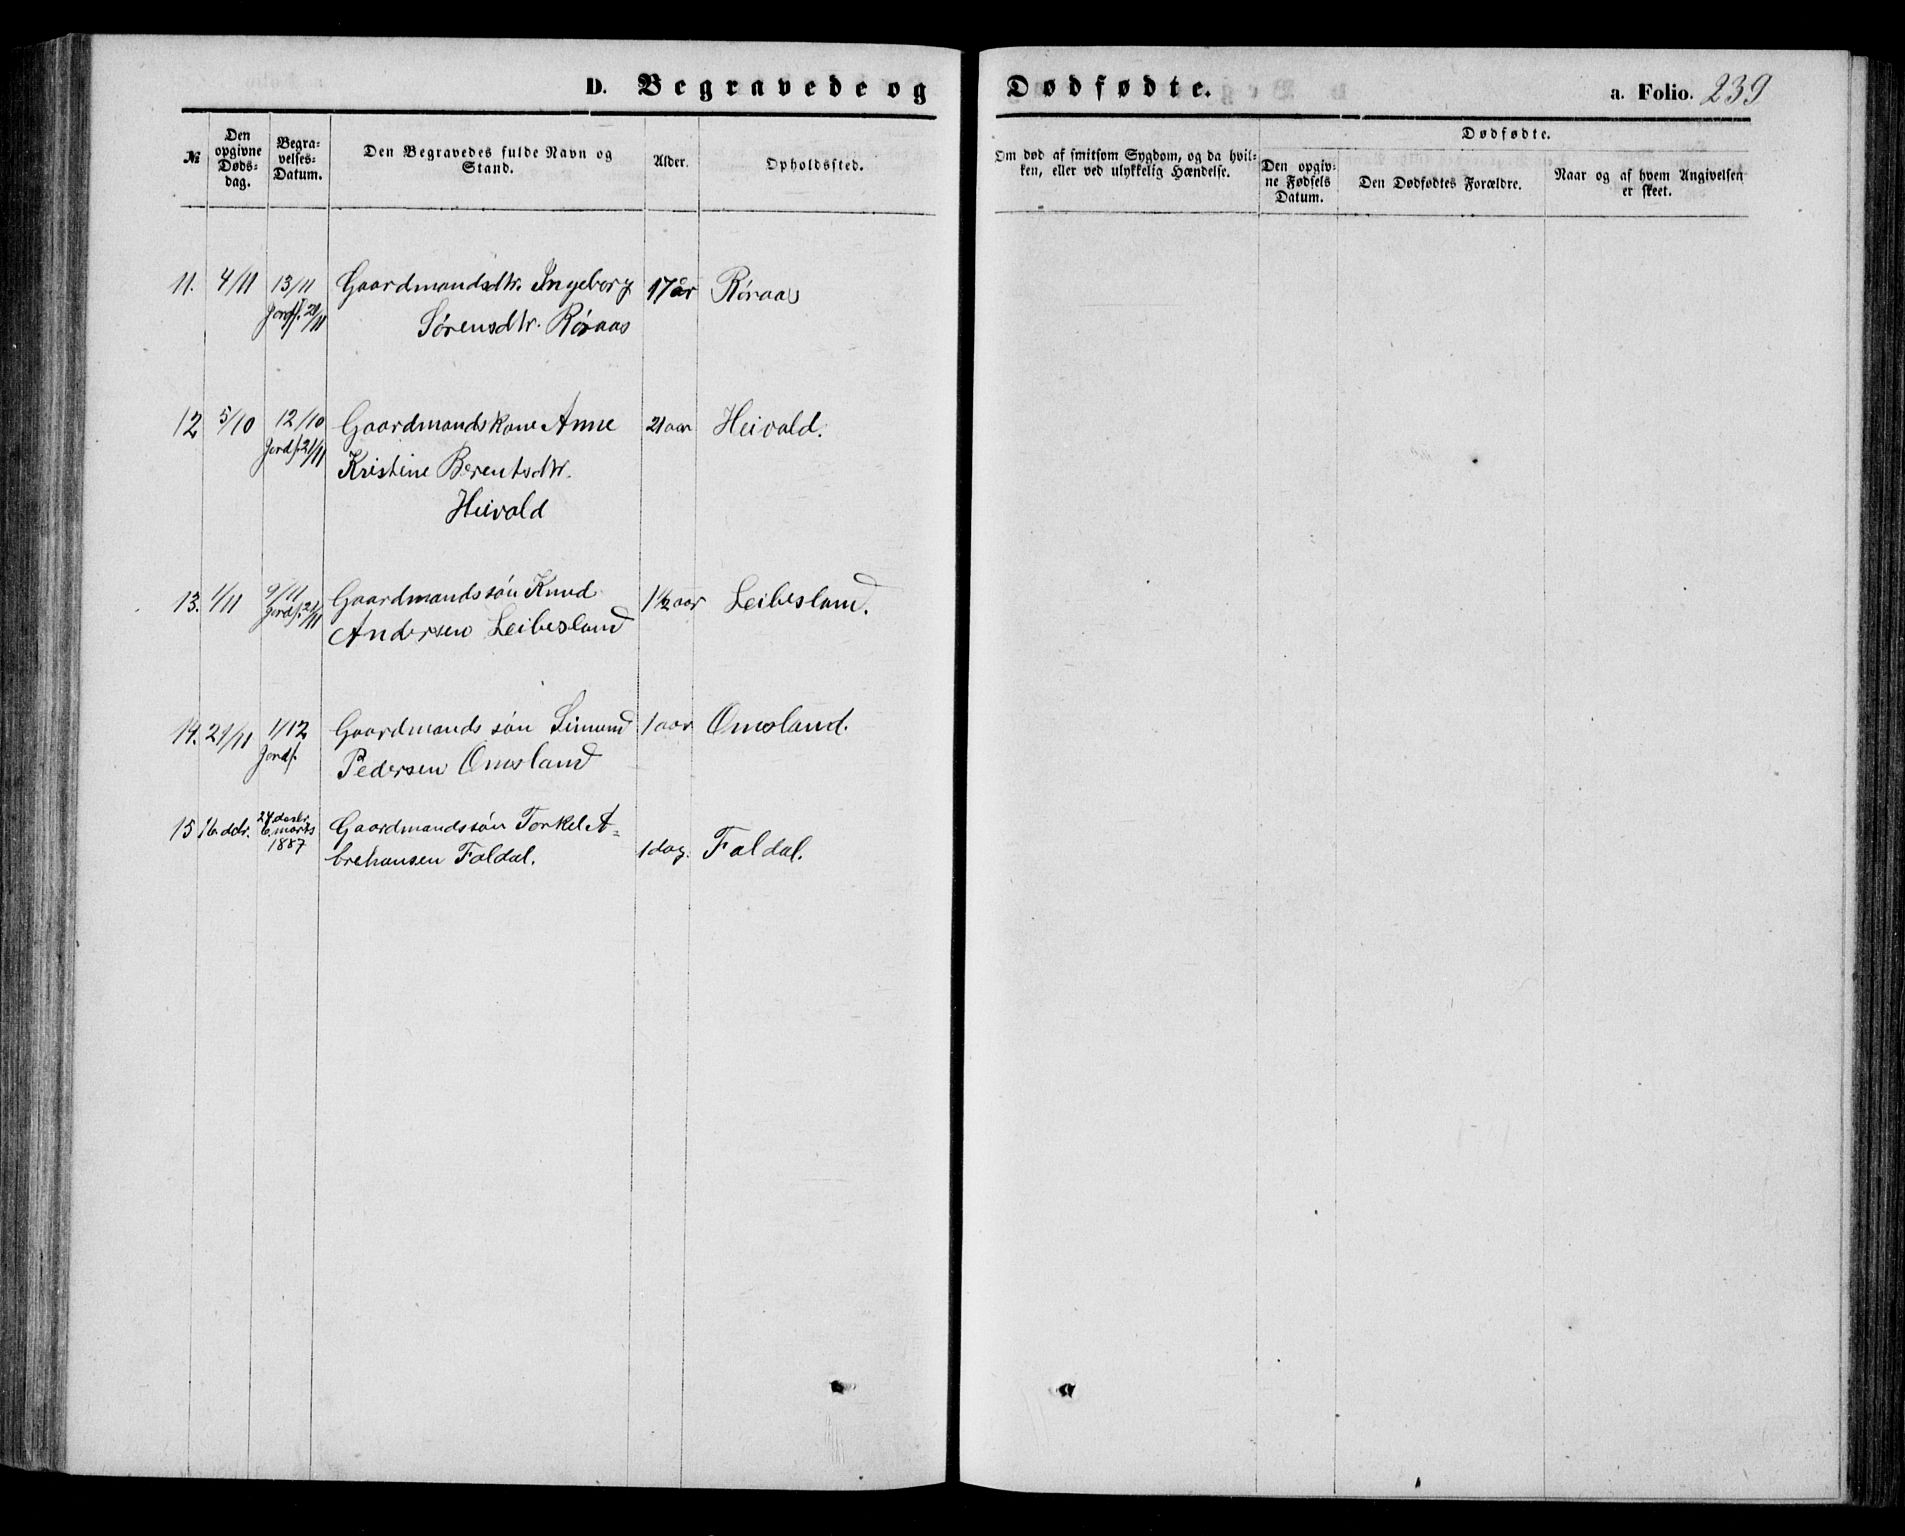 D. Begravede og Dødfødte. a. Folio. 239
№
Den opgivne Døds-dag.
Begra-velses-Datum.
Den Begravedes fulde Navn og Stand.
Alder.
Opholdssted.
Om død af smitsom Sygdom, og da hvil-
ken, eller ved ulykkelig Hændelse.
Dødfødte.
Den opgiv-ne Fødsels Datum.
Den Dødfødtes Forældre.
Naar og af hvem Angivelsen
er skeet.
11. 4/11 13/11 Gaardmandsdtr. Ingeborg 17 år Røraas
Jordf. 21/11 Sørensdtr. Røraas
12 5/10 12/10 Gaardmandskone Anne 21 aar Heivold.
Jordf. 21/11 Kristine Berentsdtr.
Heivold
13. 1/11 9/11 Gaardmandssøn Knud 1½ aar Leibesland.
Jordf. 21/11 Andersen Leibesland
14. 21/11 1/12 Gaardmands søn Simund 1 aar Omsland.
Jordf. Pedersen Omsland
15 16 dcbr. 6. marts Gaardmandssøn Torkel A-
1887 brehansen Foldal. 1 dag. Foldal.